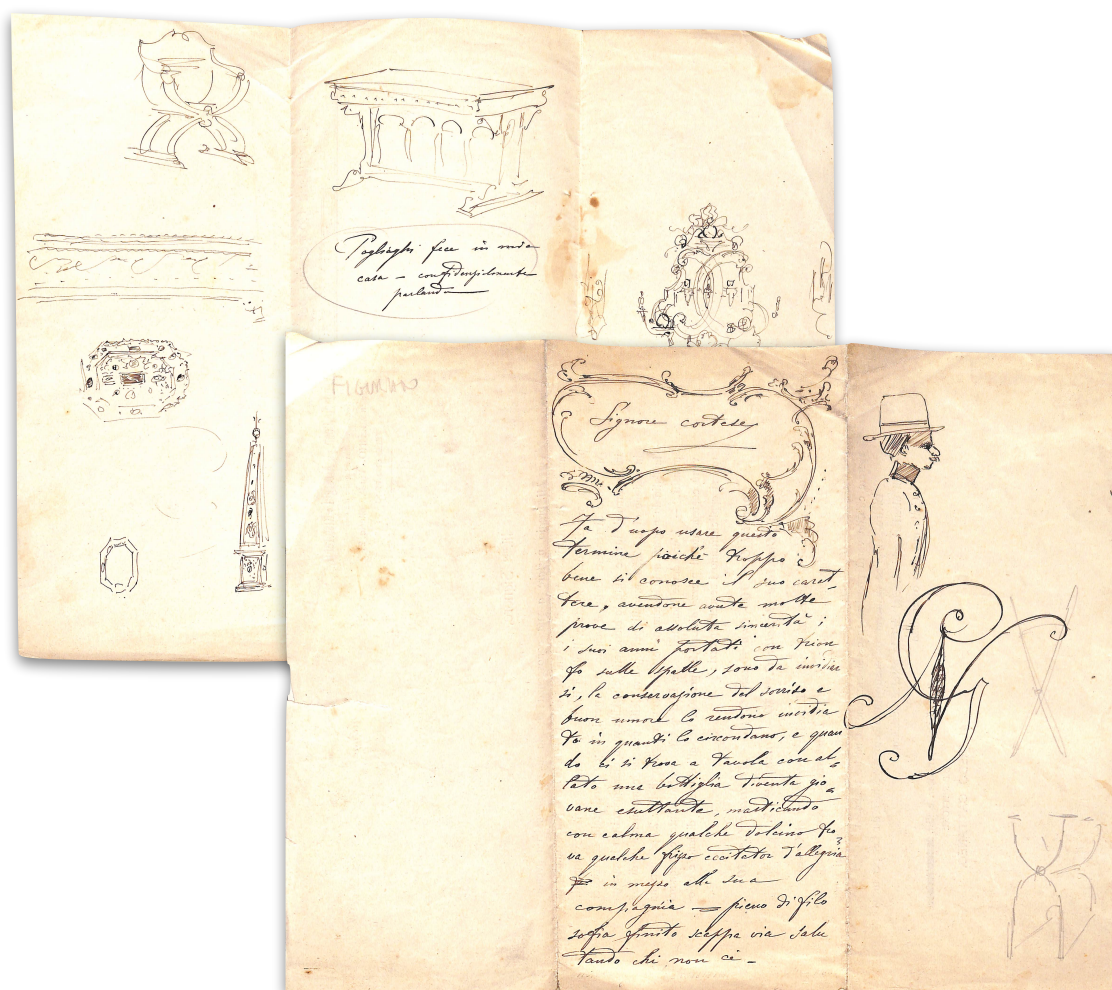 Pogliaghi fece in mia
casa – confidenzialmente
parlando
FIGURINO
Signore cortese
Fa d'uopo usare questo
termine poiché troppo
bene si conosce il suo carat
tere, avendone avute molte
prove di assoluta sincerità;
i suoi anni portati con trion
fo sulle spalle, sono da invidiar
si, la conservazione del sorriso e
buon umore lo rendono invidia
to in quanti lo circondano, e quan
do ci si trova a tavola con al-
lato una bottiglia diventa gio-
vane esultante, masticando
con calma qualche dolcino tro
va qualche frizzo eccitator d'allegria
in mezzo alla sua
compagnia – pieno di filo
sofia finito scappa via salu
tando chi non ci –